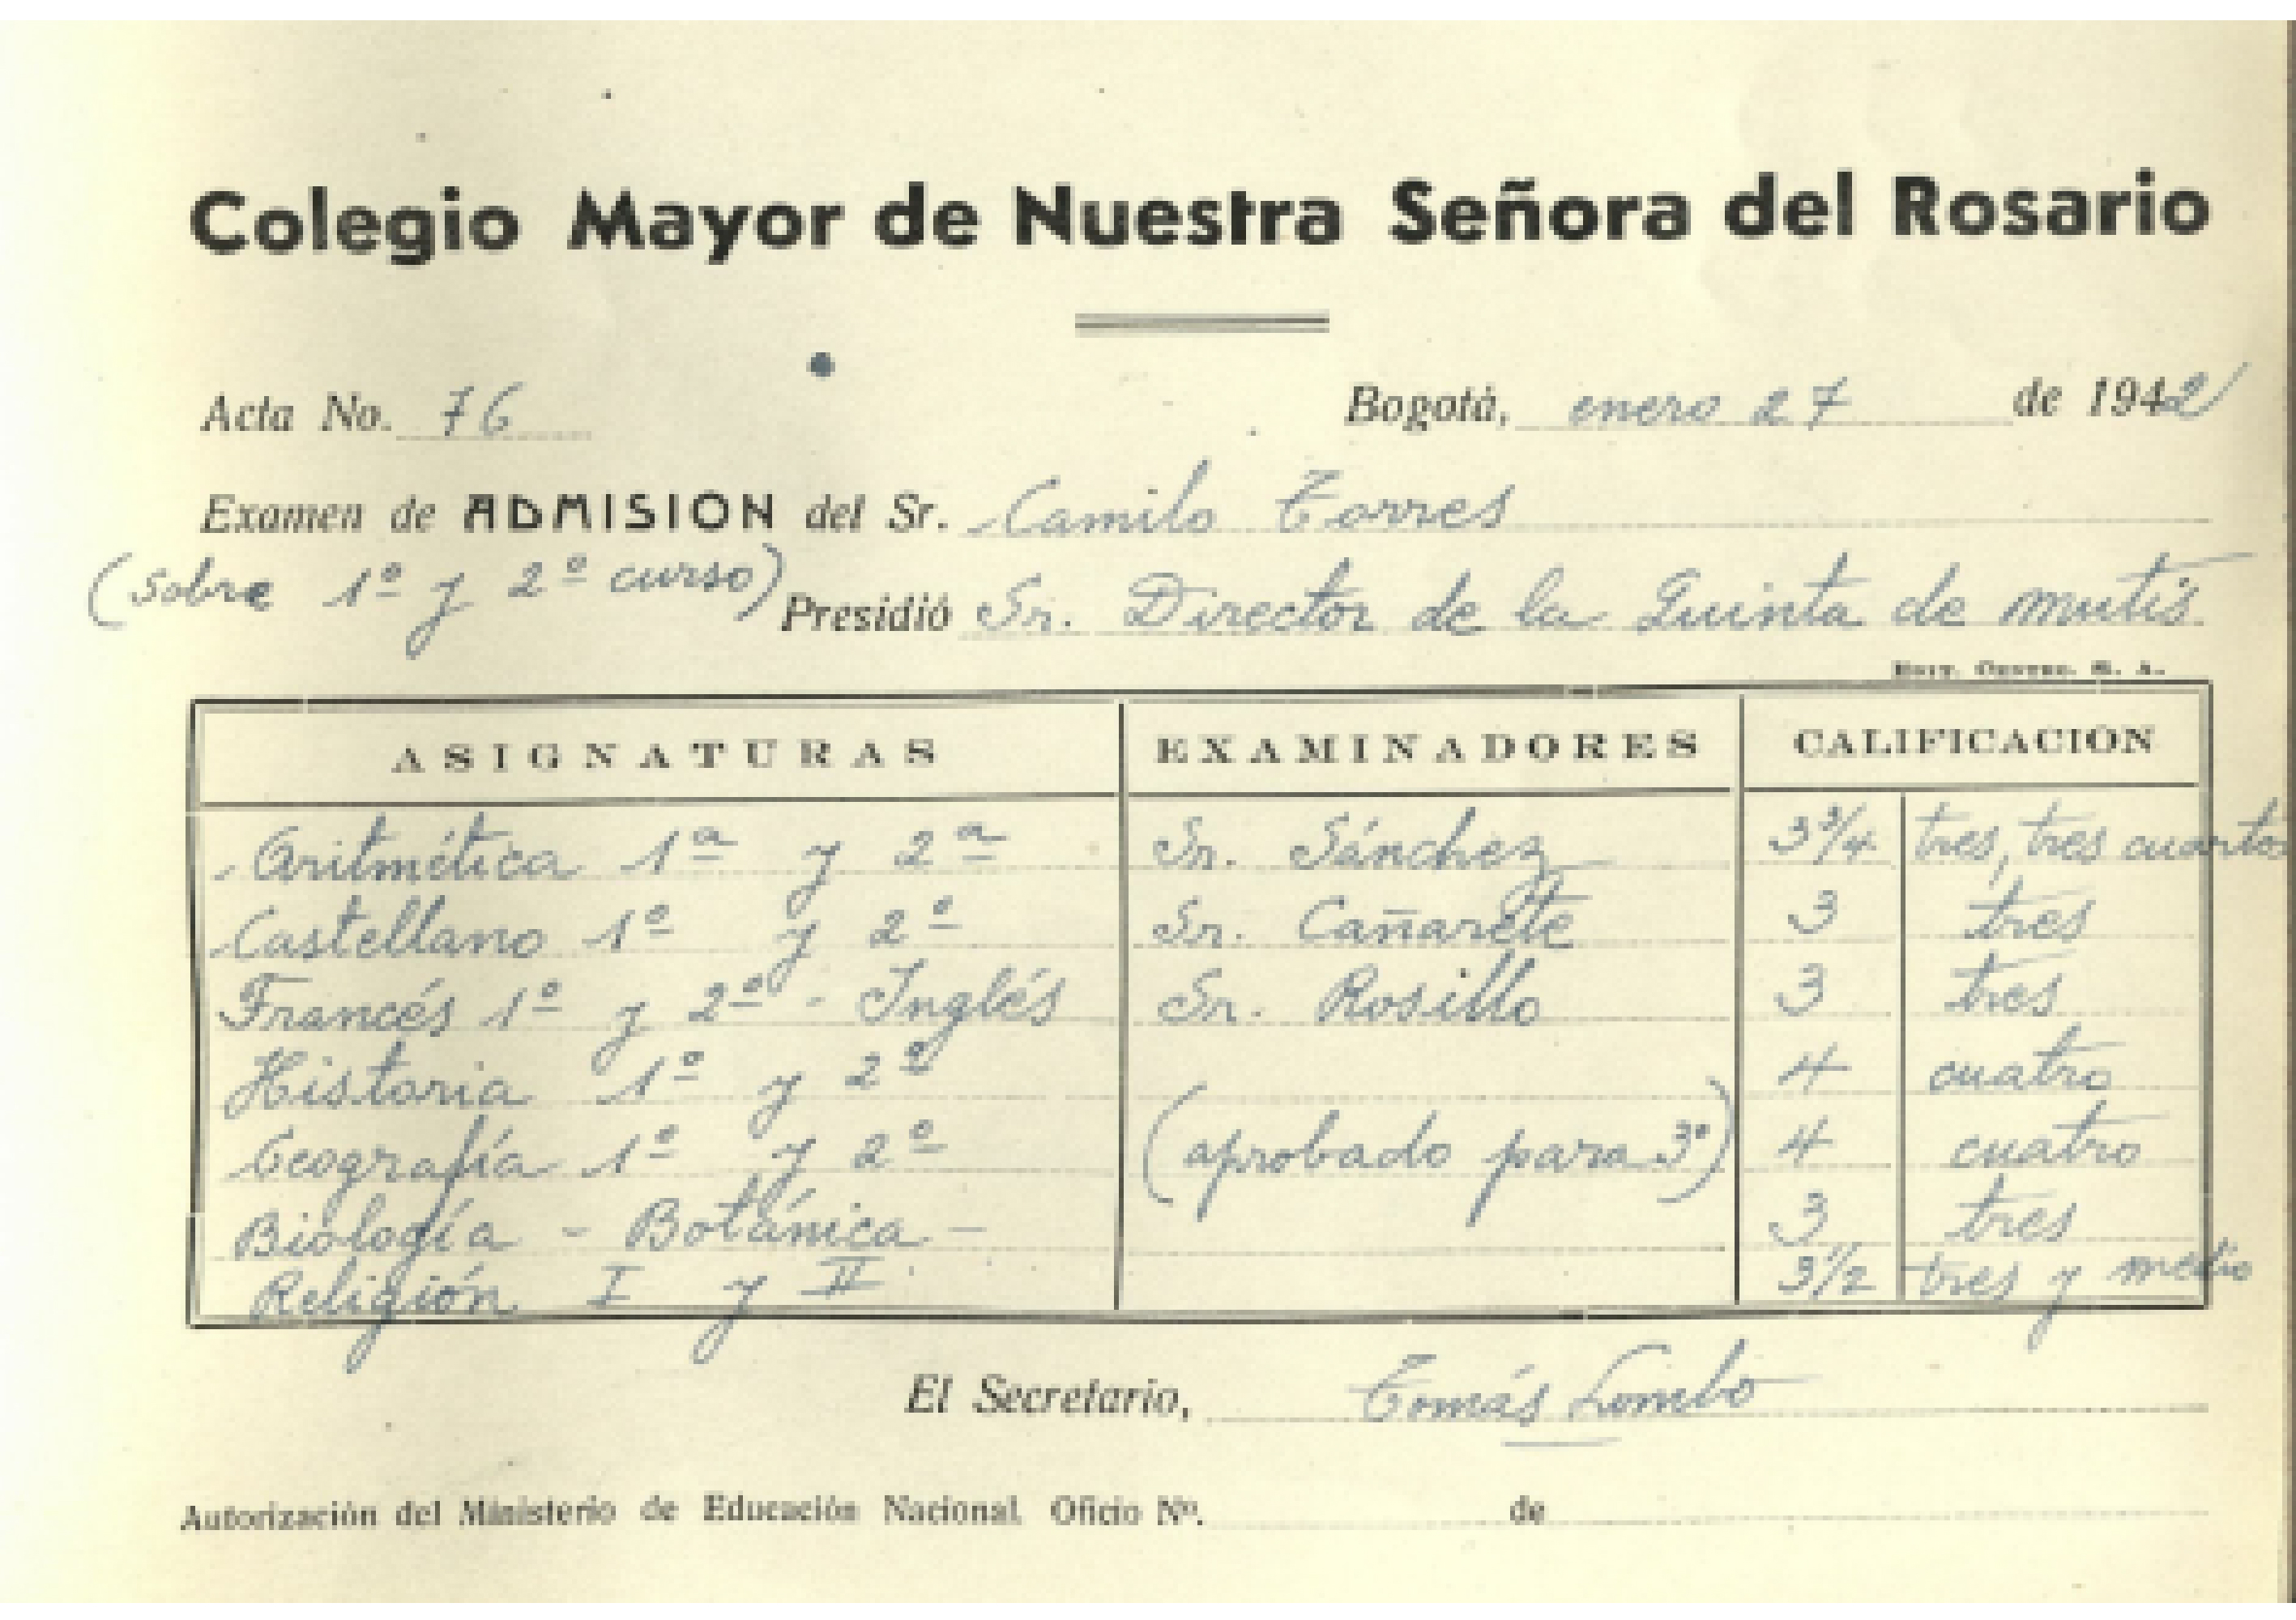 Colegio Mayor de Nuestra Señora del Rosario
Acta No. 76 Bogotá, enero 27 de 1942
Examen de ADMISION del Sr. Camilo Torres
(sobre 1º y 2º curso) Presidió Sr. Director de la Quinta de mutis.
EDIT. CENTRO. S. A.
ASIGNATURAS EXAMINADORES CALIFICACIÓN
Aritmética 1ª y 2ª Sr. Sánchez 3 3/4 tres, tres cuartos
Castellano 1º y 2º Sr. Cañarete 3 tres
Francés 1º y 2º - Inglés Sr. Rosillo 3 tres
Historia 1º y 2º 4 cuatro
Geografía 1º y 2º (aprobado para 3º) 4 cuatro
Biología - Botánica - 3 tres
Religión I y II 3 1/2 tres y medio
El Secretario, Tomás Lombo
Autorización del Ministerio de Educación Nacional. Oficio Nº. de